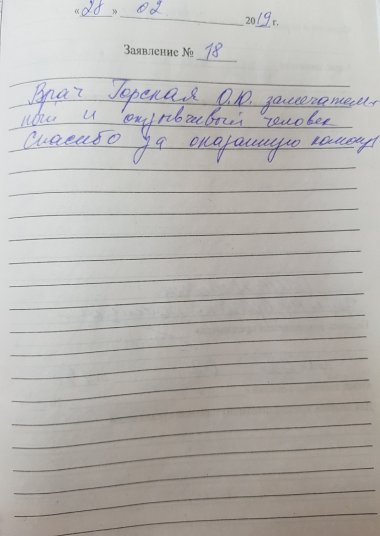 «28» 02 2019 г.
Заявление № 18
Врач Горская О.Ю. замечатель-
ный и отзывчивый человек
Спасибо за оказанную помощь